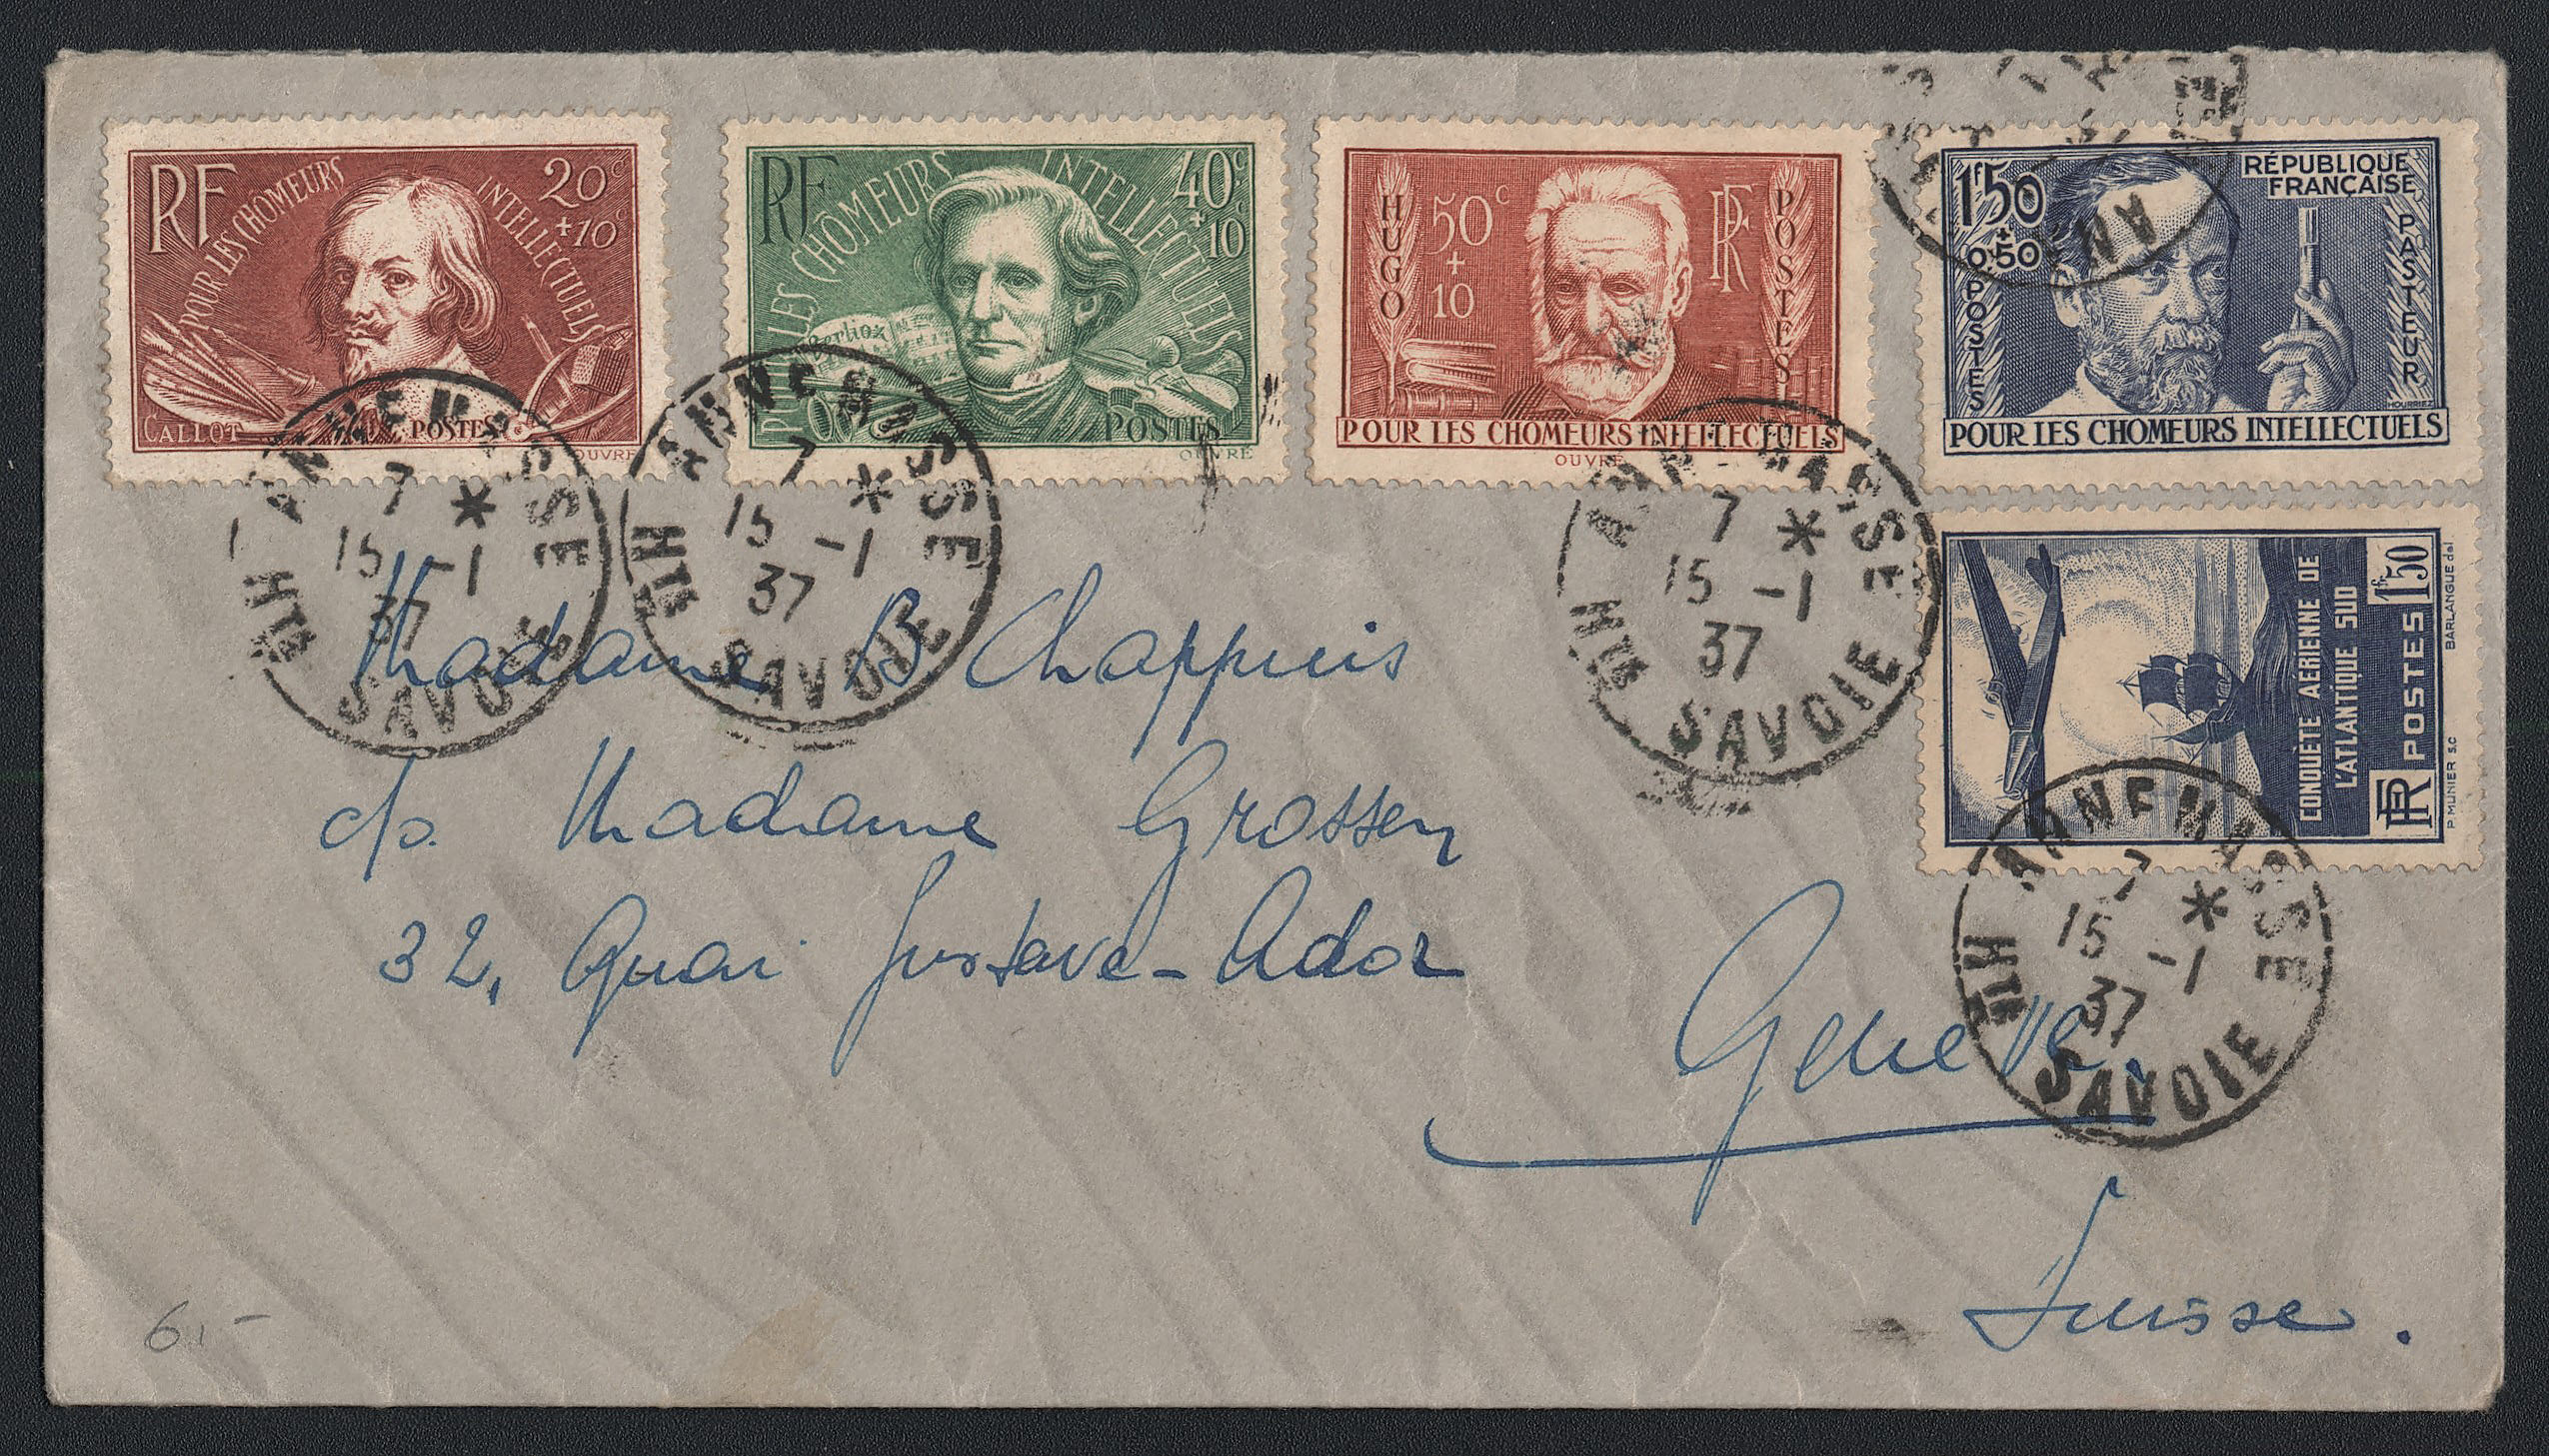 RF
POUR LES CHÔMEURS INTELLECTUELS
20c
+10c
CALLOT
POSTES
OUVRÉ
RF
POUR LES CHÔMEURS INTELLECTUELS
40c
+10c
Berlioz
POSTES
OUVRÉ
HUGO
50c
+
10
RF
POSTES
POUR LES CHOMEURS INTELLECTUELS
OUVRÉ
1f50
+
0.50
RÉPUBLIQUE
FRANÇAISE
POSTES
PASTEUR
HOURRIEZ
POUR LES CHOMEURS INTELLECTUELS
CONQUÊTE AÉRIENNE DE
L'ATLANTIQUE SUD
RF POSTES 1fr50
P. MUNIER S.C
BARLANGUE del
ANNEMASSE
7 *
15 -1
37
HTE SAVOIE
ANNEMASSE
7 *
15 -1
37
HTE SAVOIE
ANNEMASSE
7 *
15 -1
37
HTE SAVOIE
ANNEMASSE
7 *
15 -1
37
HTE SAVOIE
Madame B. Chappuis
c/o. Madame Grossen
32, Quai Gustave-Ador
Genève.
Suisse.
6.-